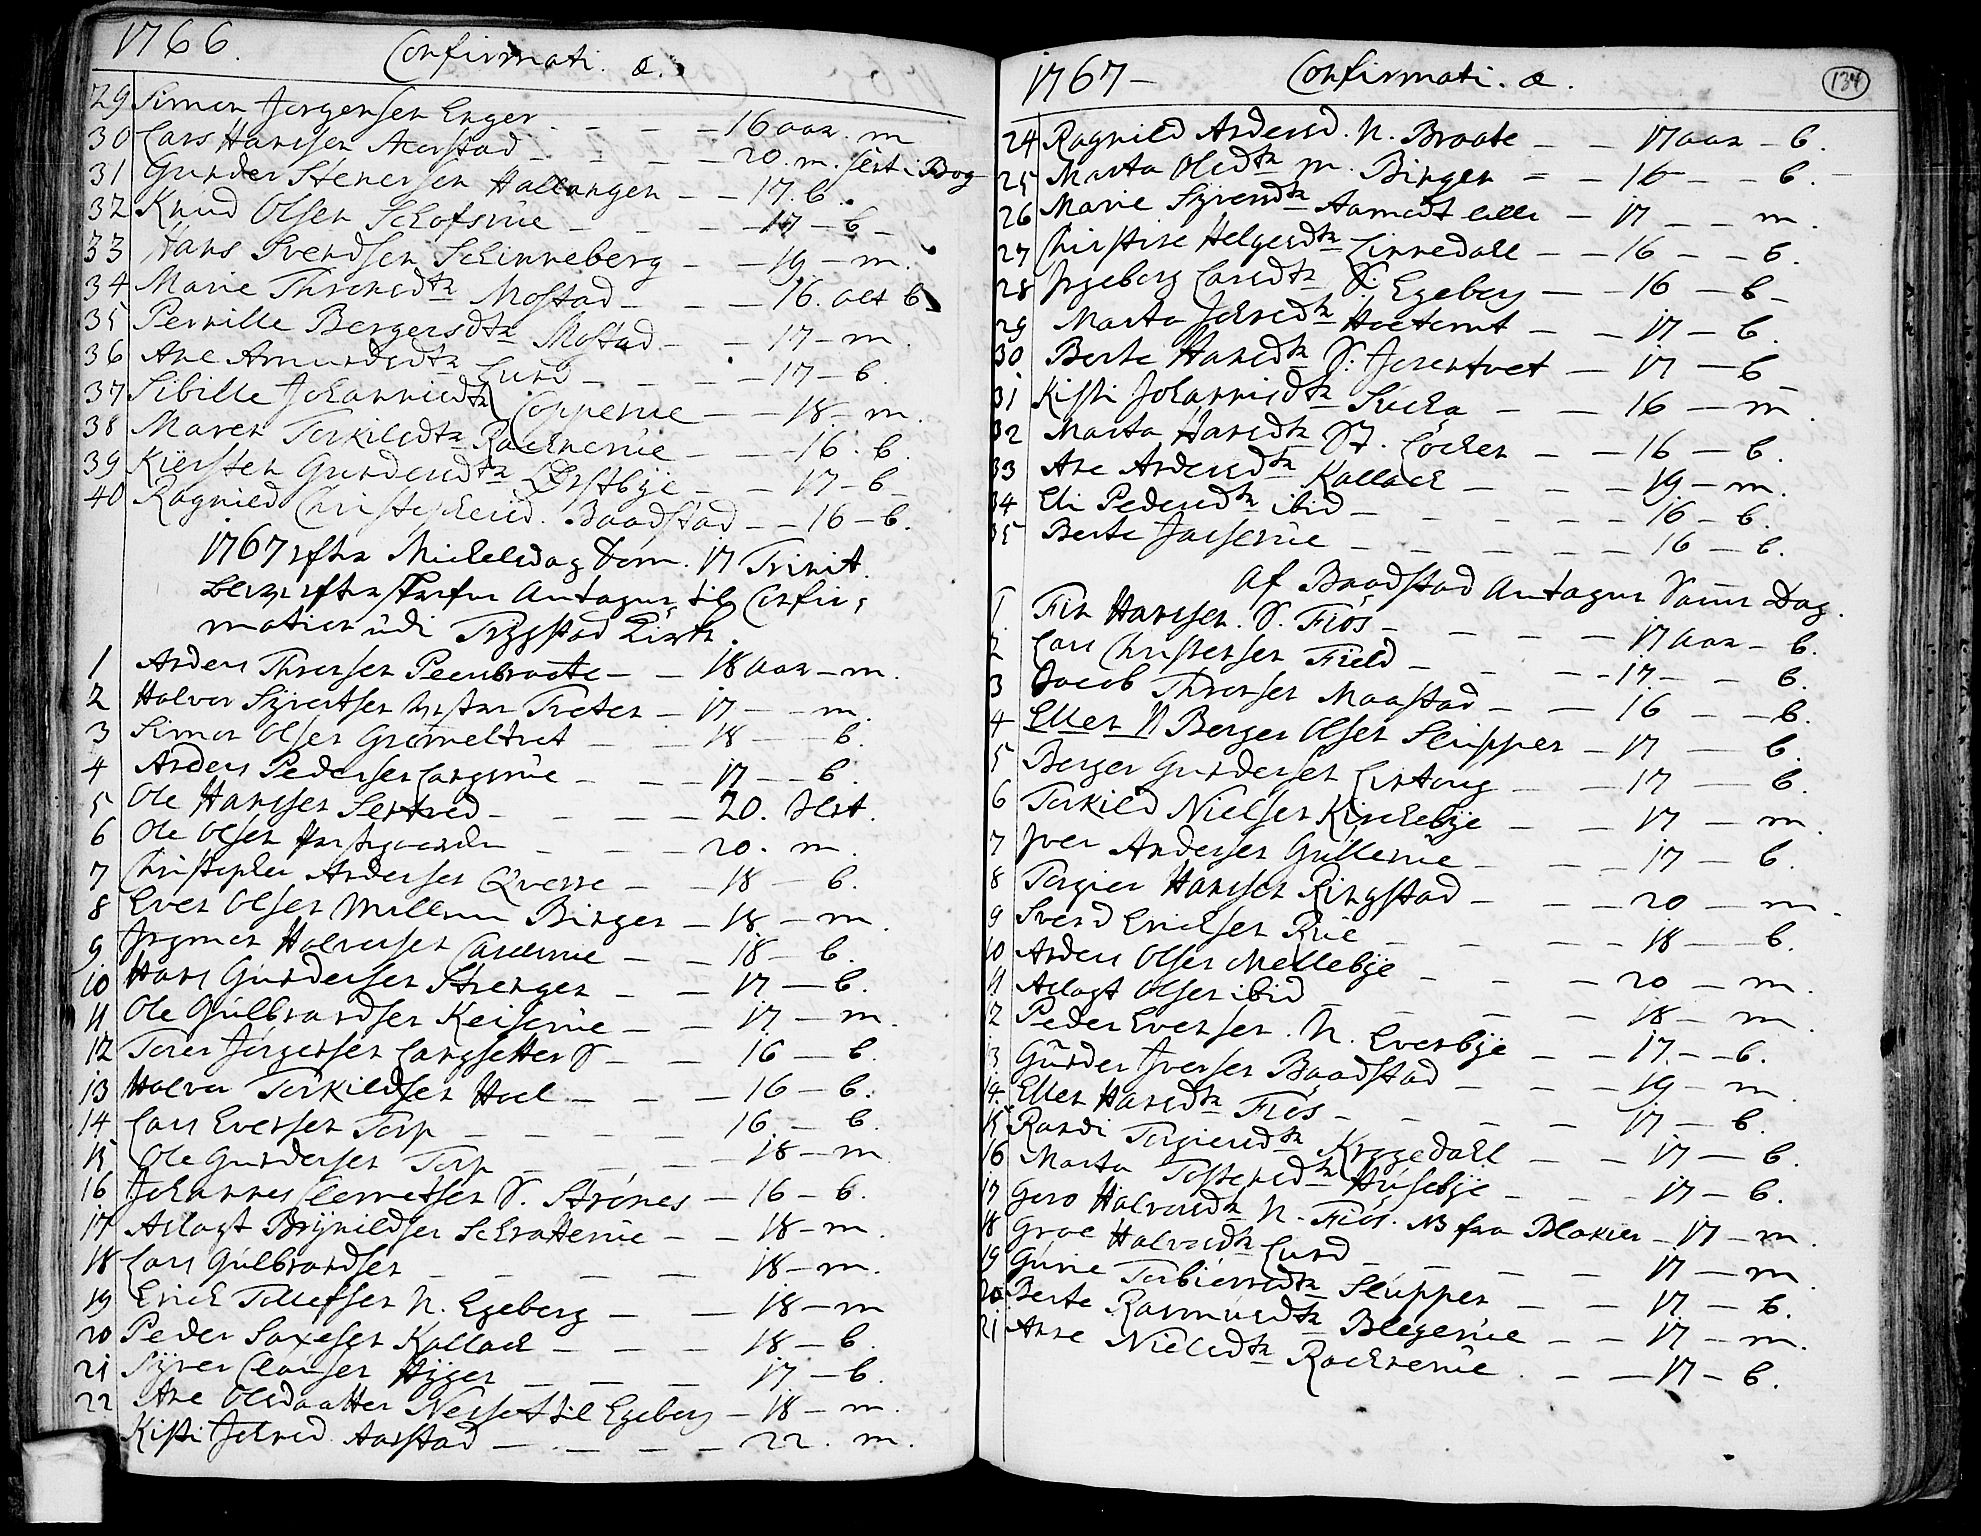 1766.
Confirmati. æ.
29 Simon Jørgensen Enger - - - 16 aar. m
30 Lars Hansen Aerstad - - - 20. m. slet i Bog
31 Gunder Stenersen Hallangen - - 17. b.
32 Knud Olsen Schofsrüe - - - 17 - b -
33 Hans Svendsen Schinneberg - - 19 - m.
34 Marie Thronsdtr Mostad - - - 16. b
35 Pernille Bergersdtr Mostad - - 17 - m.
36 Ane Amundsdtr Lund - - - 17 - b.
37 Sibille Johannisdtr Copperüe - - 18 - m.
38 Maren Torkilsdtr Racknerüe - - 16. b.
39 Kiersten Gundersdtr Østbÿe - - 17 - b -
40 Ragnild Christophersd. Baadstad - - 16 - b.
1767 efter Mickelsdag Dom. 17 Trinit.
blev efterskrefne Antagne til Confir-
mation udi Trÿgstad Kirke.
1 Anders Thronsen Peenbraate - - 18 aar - m.
2 Halvor Sÿvertsen Treter - 17 - - m.
3 Simon Olsen Grømeltvet - - 18 - - b.
4 Anders Pedersen Langsrüe - - - 17 - - b.
5 Ole Hansen Sertved - - - - 20. slet.
6 Ole Olsen - - - 20. m.
7 Christopher Andersen Qverre - - 18 - b.
8 Even Olsen Mellem Binger - 18 - m.
9. Ingmon Halvorsen - - 18 - b.
10 Hans Gundersen Strenger - - 17 - b.
11 Ole Gulbrandsen Keiserüe - - 17 - m.
12 Torer Jørgensen Langsetter S - - 16 - b.
13 Halvor Torkildsen Hoel - - - 16 - b.
14 Lars Eversen Torp - - - - 16. - b.
15 Ole Gundersen Torp - - - - 18 - m.
16 Johannes Clemetsen S. Strønes - 16 - b.
17 Aslagt Brÿnildsen Schratterüe - - 18 - m.
18 Lars Gulbrandsen - - - - 18 - m.
19 Erick Tollefsen N. Egeberg - - 18 - m
20 Peder Saxesen Kallack - - - 18 - b.
21 Sÿver Clausen Hÿger - - - 17 - b.
22 Ane Olesdaatter Nesset til Egeberg - 18 - m.
Kisti Johnsd. Aarstad - - - - 22. m.
1767 -
Confirmati. æ.
134
24 Ragnild Andersd. N. Braate - - 17 aar - b.
25 Marta Olesdtr m. Binger - - 16 - - b.
26 Marie Sÿversdtr Aamodt lille - 17 - - m.
27 Christine Helgesdtr Linnedall - - 16 - - b.
28 Ingeborg Larsdtr S. Egeberg - - 16 - b -
29 Marta Johnsdtr - - 17 - b.
30 Berte Hansdtr S. Jerentvet - 17 - b
31 Kisti Johannisdtr Sucka - - 16 - m.
32 Marta Hansdtr St. Løcken - - 16 - b.
33 Ane Andersdtr Kallack - - - 19 - m.
34 Eli Pedersdtr ibid - - - - - 16 - b.
35 Berte - - - - - 16 - b.
Af Baadstad Antagne Samme Dag.
1. Finn Hansen. S. Fiøs - - - - 17 aar - b.
2 Lars Christensen Field - - - 17 - - b.
3 Jacob Thronsen Maastad - - 16 - - b.
4 Eller N Berger Olsen Slupper - 17 - b.
5 Berger Gundersen - - 17 - b.
6 Torkild Nielsen Kirckebÿe - - 17 - m.
7 Iver Andersen Gullerüe - - - 17 - b.
8 Torgier Hansen Ringstad - - - 20 - m.
9 Svend Ericksen Rüe - - - - 18 - b.
10 Anders Olsen Mellebÿe - - - 20 - m.
11 Aslagt Olsen ibid - - - - 18 - m.
12 Peder Evensen. N. Evenbÿe - - 17. - b.
13 Gunder Iversen Baadstad - - - 19 - m.
14. Ellen Hansdtr Fiøs - - - - 17 - b.
15 Randi Torgiersdtr Krogedahl - - 17 - b.
16 Marta Tostensdtr Husebÿe - - - 17 - b.
17 Goro Halvorsdtr N. Fiøs. NB fra Blakier - 17 - m.
18 Groe Halvorsdtr Lund - - - - 17 - m
19 Gurie Torbiørnsdtr Slupper - - 17 - b.
20 Berte Rasmusdtr Blegerüe - - 17 - m.
21 Anne Nielsdtr Racknerüe. - - 17 - b.